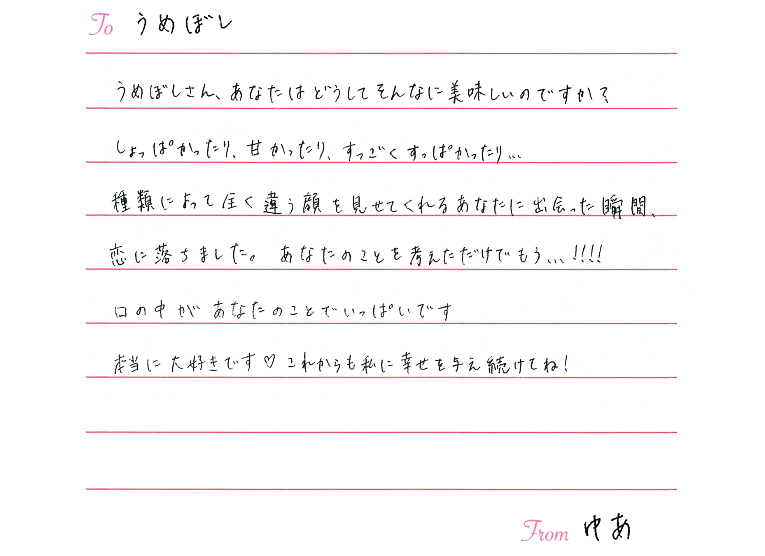 To うめぼし
うめぼしさん、あなたはどうしてそんなに美味しいのですか?
しょっぱかったり、甘かったり、すっごくすっぱかったり...
種類によって全く違う顔を見せてくれるあなたに出会った瞬間、
恋に落ちました。あなたのことを考えただけでもう...!!!!
口の中があなたのことでいっぱいです
本当に大好きです♡これからも私に幸せを与え続けてね!
From ゆあ